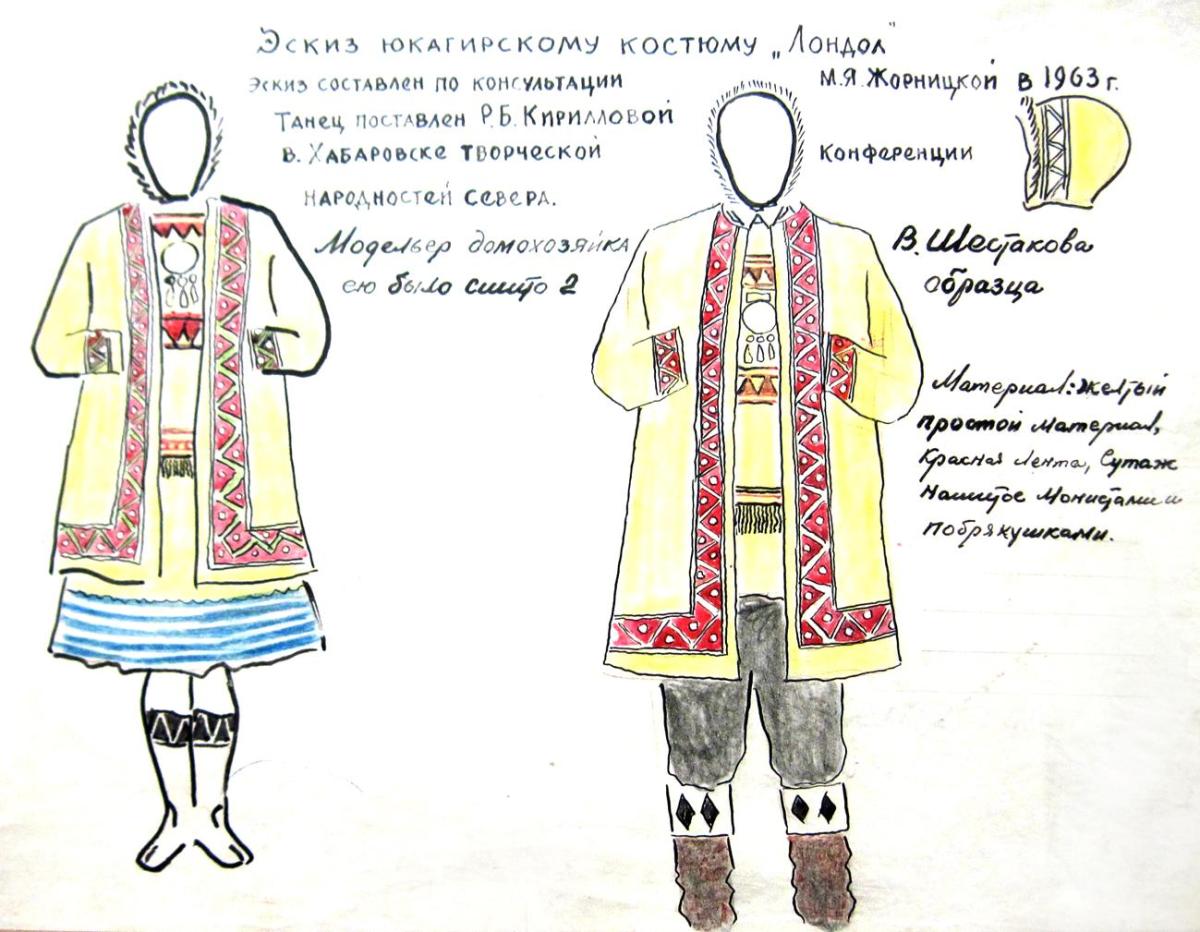 Эскиз юкагирскому костюму „Лондол"
Эскиз составлен по консультации М.Я. Жорницкой в 1963 г.
Танец поставлен Р.Б. Кирилловой
в. Хабаровске творческой конференции
народностей Севера.
Модельер домохозяйка В. Шестакова
ею было сшито 2 образца
Материал: желтый
простой материал,
Красная лента, Сутаж
нашитое монистами и
побрякушками.